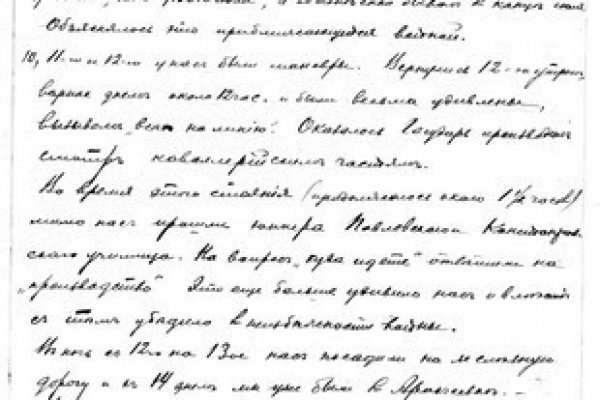 Объяснялось это приближающейся войной.
10, 11-го и 12-го у нас были маневры. Вернулись 12-го утром,
вернее днем около 12 час. и были весьма удивлены,
вызовом „всех на линию“. Оказалось Государь производит
смотръ кавалерийским частям.
Во время этого стояния (продолжалось около 1½ часов)
мимо нас прошли юнкера Павловского
ского училища. На вопрос „куда идете“ ответили на
„производство“ Это еще больше удивило нас и
с тем убедило в неизбежности войны.
В ночь с 12го на 13ое нас посадили на железную
дорогу и съ 14 днем мы уже были в